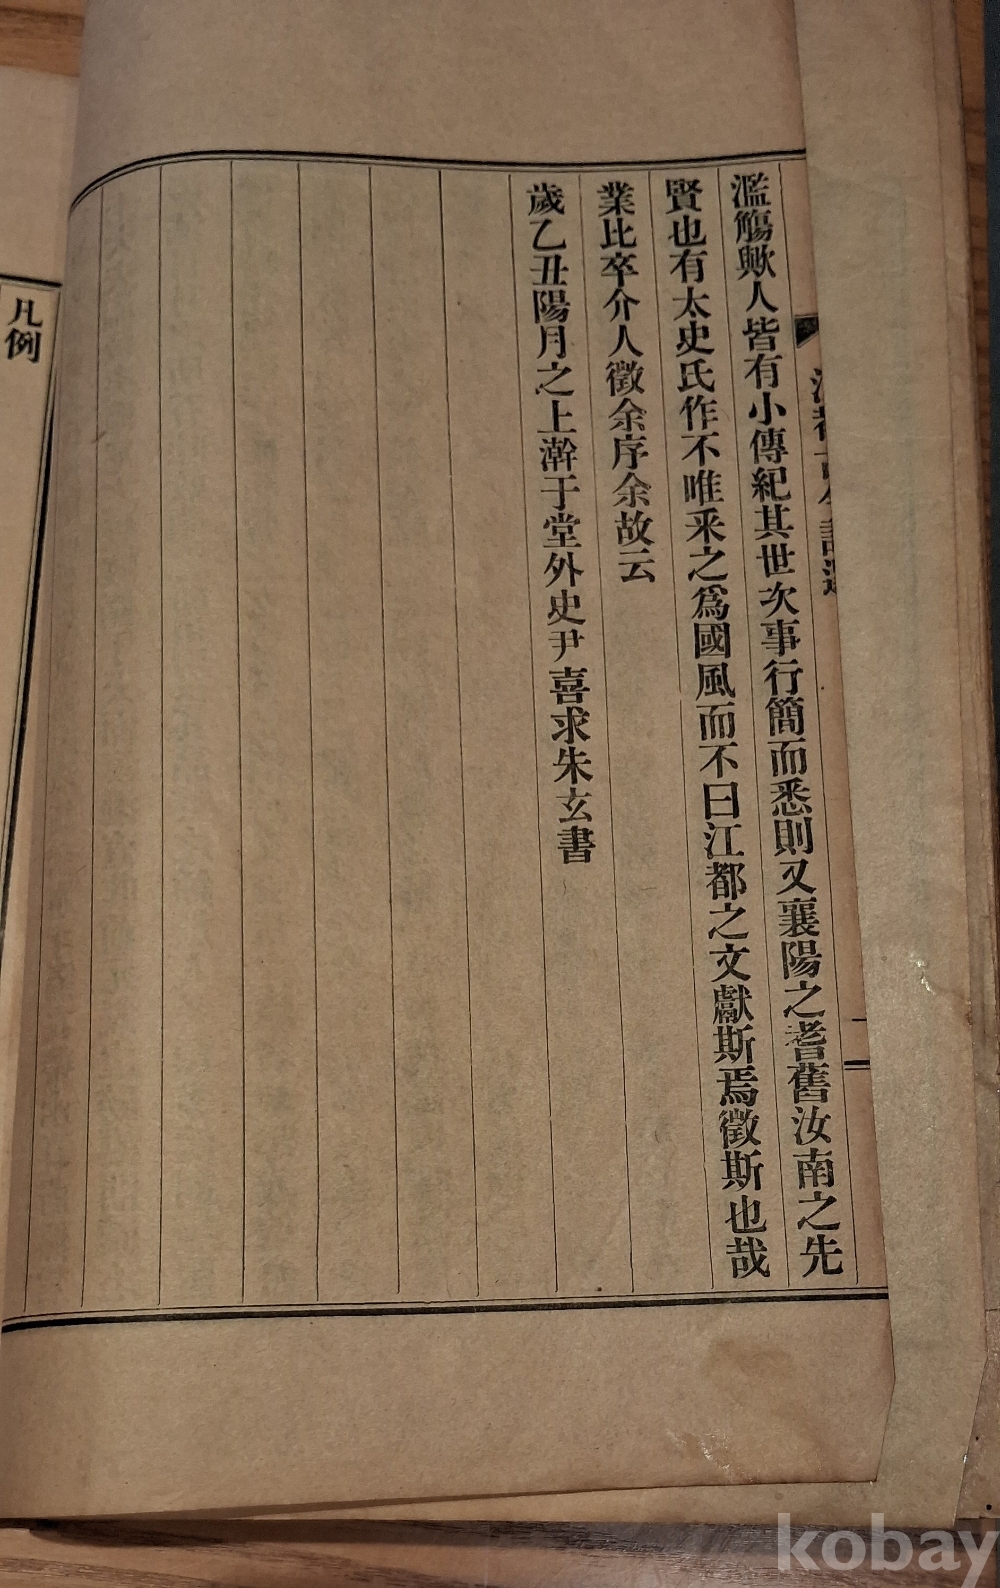 濫觴歟人皆有小傳紀其世次事行簡而悉則又襄陽之耆舊汝南之先
賢也有太史氏作不唯釆之爲國風而不曰江都之文獻斯焉徵斯也哉
業比卒介人徵余序余故云
歲乙丑陽月之上澣于堂外史尹喜求朱玄書
凡例
kobay